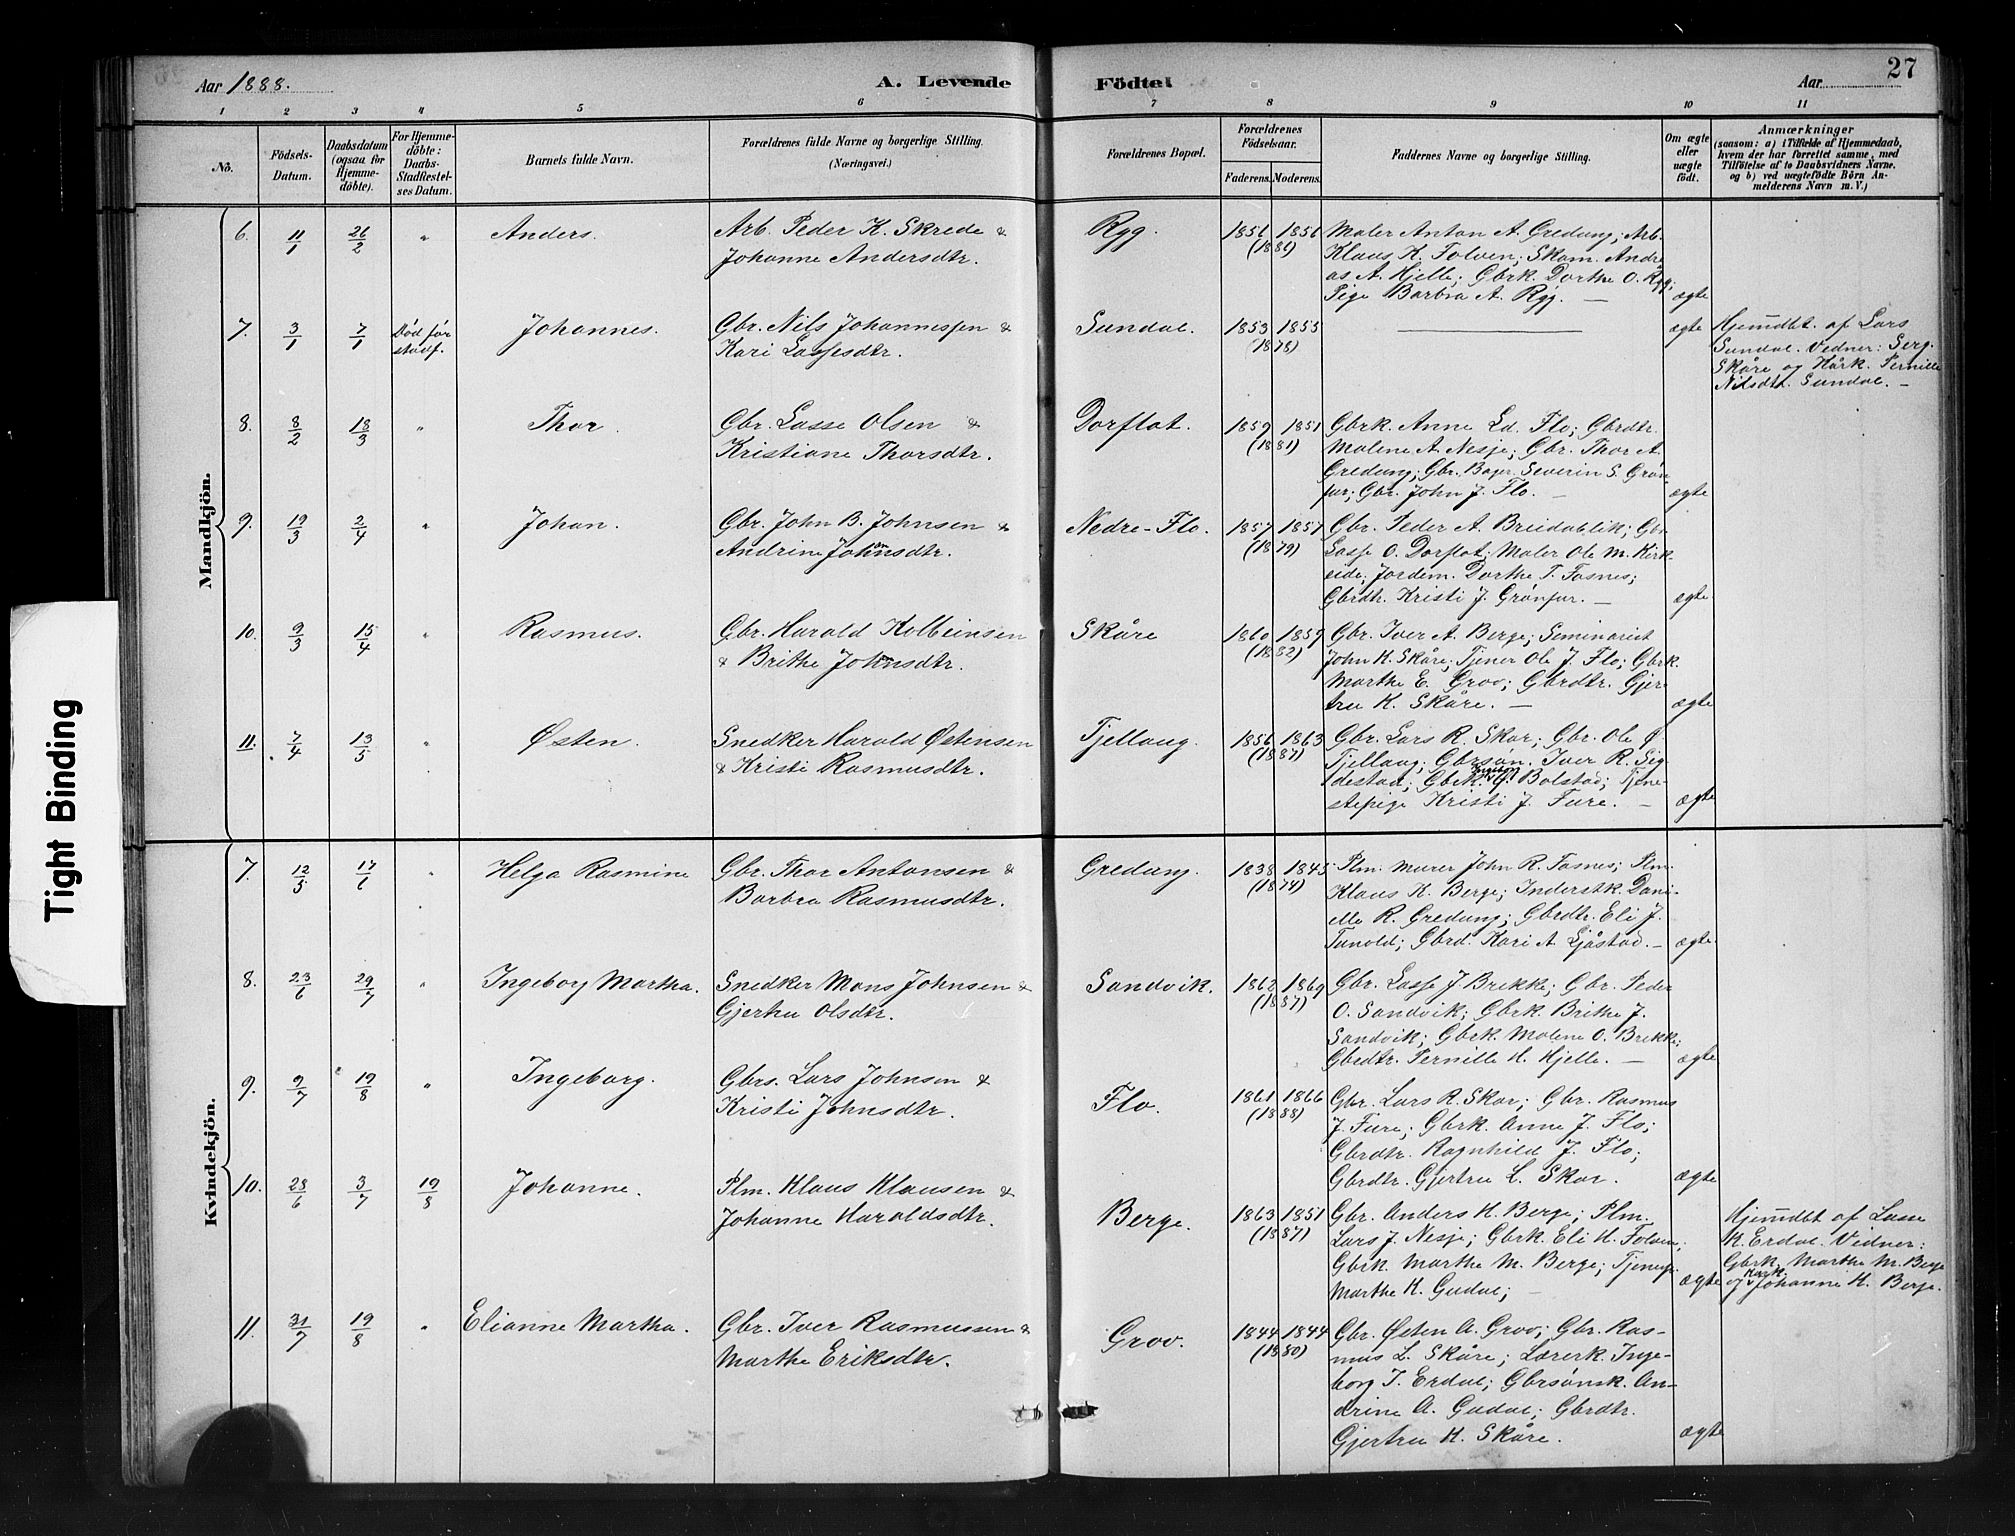 Aar 1888.
A. Levende Födte.
Aar
27
1 2 3 4 5 6 7 8 9 10 11
No.
Födsels-Datum.
Daabsdatum (ogsaa for Hjemme-döbte).
For Hjemme-döbte: Daabs-Stadfæstel-ses Datum.
Barnets fulde Navn.
Forældrenes fulde Navne og borgerlige Stilling.
(Næringsvei.)
Forældrenes Bopæl.
Forældrenes Födselsaar.
Faderens. Moderens.
Faddernes Navne og borgerlige Stilling.
Om ægte eller uægte født.
Anmærkninger
(saasom: a) i Tilfælde af Hjemmedaab,
hvem der har forrettet samme, med
Tilföielse af to Daabsvidners Navne.
og b) ved uægtefödte Börn An-
melderens Navn m. V.)
Mandkjön.
6. 11/1 26/2 " Anders. Arb. Peder K. Skrede &
Johanne Andersdtr.
Rygg. 1856 1856 (1886)
Maler Anton A. Gredung; Arb.
Klaus K. Folven; Skom. Andre
as A. Hjelle; Gbrk. Dorthe O. Rygg;
Pige Barbra A. Rygg. — ægte
7. 3/1 7/1 Död før stadf. Johannes. Gbr. Nils Johannessen &
Kari Lassesdtr.
Sundal. 1853 1855 (1878) ægte
Hjemdbt. af Lars
Sundal. Vedner: Serg.
Skåre og Kårk. Pernille
Nilsdtr. Sundal. —
8. 8/2 18/3 " Thor. Gbr. Lasse Olsen &
Kristiane Thorsdtr.
Dorflot. 1859 1851 (1881)
Gbrk. Anne Ld. Flo; Gbrdtr.
Malene A. Nesje; Gbr. Thor A.
Gredung; Gbr. Bager Severin S. Grön
fur; Gbr. John J. Flo. — ægte
9. 19/3 2/4 " Johan. Gbr. John B. Johnsen &
Andrine Johnsdtr.
Nedre-Flo. 1857 1857 (1879)
Gbr. Peder A. Breidablik; Gbr.
Lasse O. Dorflot; Maler Ole M. Kirk-
eide; Jordem. Dorthe T. Fosnes;
Gbrdtr. Kristi J. Grönfur. — ægte
10. 9/3 15/4 " Rasmus. Gbr. Harald Kolbeinsen
& Brithe Johnsdtr.
Skåre 1860 1859 (1882)
Gbr. Iver A. Berge; Seminarist
John K. Skåre; Tjener Ole J. Flo; Gbrk.
Marthe E. Grov; Gbrdtr. Gjer-
tru K. Skåre. — ægte
11. 7/4 13/5 " Østen. Snedker Harald Østensen
& Kristi Rasmusdtr.
Tjellaug. 1856 1863 (1887)
Gbr. Lars R. Skar; Gbr. Ole Ø.
Tjellaug; Gbrsøn. Iver R. Sig
destad; Gbrk. Bolstad; Tjene-
stepige Kristi J. Fure. — ægte
Kvindekjön.
7. 12/5 17/6 " Helga Rasmine Gbr. Thor Antonsen &
Barbra Rasmusdtr.
Gredung. 1838 1845 (1874)
Plm. Murer John R. Fosnes; Plm.
Klaus K. Berge; Inderstk. Dani-
elle R. Gredung; Gbrdtr. Eli J.
Tunold; Gbrd. Kari A. Sjåstad. — ægte.
8. 23/6 29/7 " Ingeborg Martha. Snedker Mons Johnsen &
Gjertru Olsdtr.
Sandvik. 1862 1869 (1887)
Gbr. Lasse J. Brekke; Gbr. Peder
O. Sandvik; Gbrk. Brithe J.
Sandvik; Gbrk. Malene O. Brekke;
Gbrdtr. Pernille H. Hjelle. — ægte
9. 9/7 19/8 " Ingeborg. Gbrs. Lars Johnsen &
Kristi Johnsdtr.
Flo. 1861 1866 (1888)
Gbr. Lars R. Skar; Gbr. Rasmus
J. Fure; Gbrk. Anne J. Flo;
Gbrdtr. Ragnhild J. Flo;
Gbrdtr. Gjertru L. Skar. ægte
10. 28/6 3/7 19/8 Johanne. Plm. Klaus Klausen &
Johanne Haraldsdtr.
Berge. 1863 1851 (1887)
Gbr. Anders H. Berge; Plm.
Lars J. Nesje; Gbrk. Eli H. Folven;
Gbrk. Marthe M. Berge; Tjenepi.
Marthe K. Gudal; — ægte
Hjemdbt af Lasse
K. Erdal. Vedner:
Gbrk. Marthe M. Berge
og Kårk. Johanne H. Berge.
11. 31/7 19/8 " Elianne Martha. Gbr. Iver Rasmussen &
Marthe Eriksdtr.
Grov. 1844 1844 (1880)
Gbr. Østen A. Grov; Gbr. Ras-
mus L. Skåre; Lærerk. Inge-
borg T. Erdal; Gbrsønsk. An-
drine A. Gudal; Gbrdtr.
Gjertru H. Skåre. ægte
Tight Binding